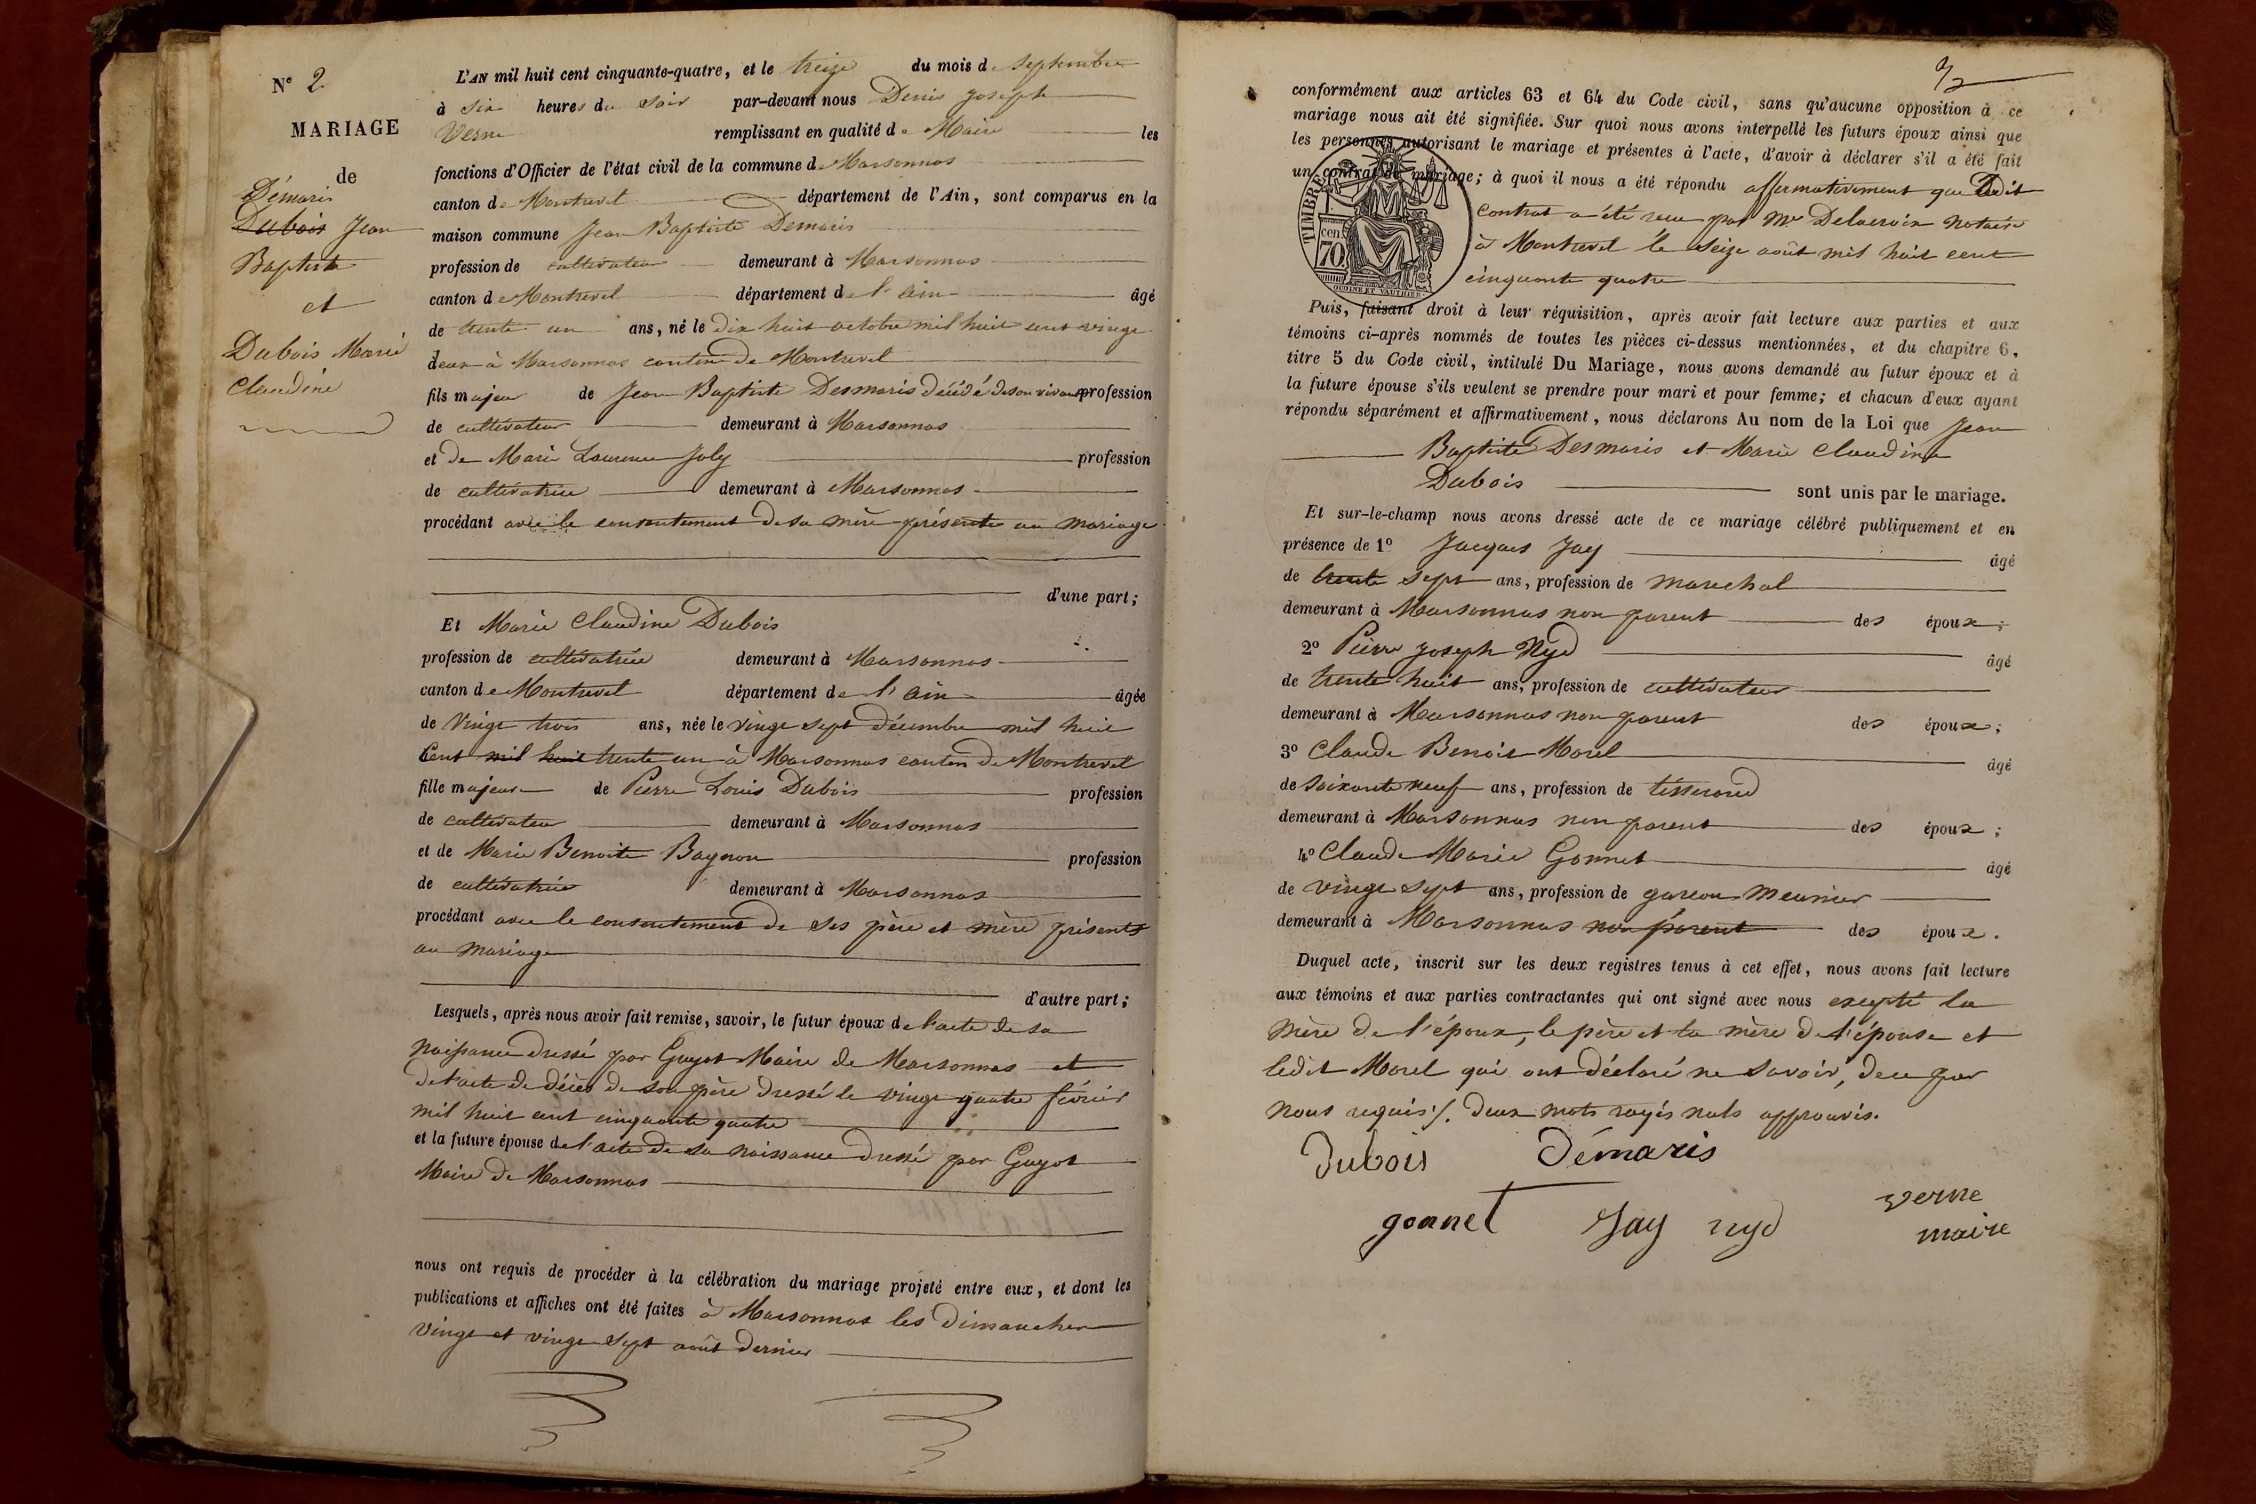 Nº 2.
MARIAGE
de
Démaris
Dubois Jean
Baptiste
et
Dubois Marie
Claudine
L'AN mil huit cent cinquante-quatre, et le treize du mois de septembre
à six heures du soir par-devant nous Denis Joseph
Verne remplissant en qualité de Maire les
fonctions d'Officier de l'état civil de la commune de Marsonnas
canton de Montrevel département de l'Ain, sont comparus en la
maison commune Jean Baptiste Demaris
profession de cultivateur demeurant à Marsonnas
canton de Montrevel département de l'ain âgé
de trente un ans, né le dix huit octobre mil huit cent vingt
deux à Marsonnas canton de Montrevel
fils majeur de Jean Baptiste Desmaris décédé de son vivant profession
de cultivateur demeurant à Marsonnas
et de Marie Laurence Joly profession
de cultivatrice demeurant à Marsonnas
procédant avec le consentement de sa mère présente au mariage
d'une part;
Et Marie Claudine Dubois
profession de cultivatrice demeurant à Marsonnas
canton de Montrevel département de l'ain âgée
de vingt trois ans, née le vingt sept décembre mil huit
Cent mil huit trente un à Marsonnas canton de Montrevel
fille majeure de Pierre Louis Dubois profession
de cultivateur demeurant à Marsonnas
et de Marie Benoite Bagnon profession
de cultivatrice demeurant à Marsonnas
procédant avec le consentement de ses père et mère présents
au mariage
d'autre part;
Lesquels, après nous avoir fait remise, savoir, le futur époux de l'acte de sa
naissance dressé par Guyot Maire de Marsonnas et
de l'acte de décès de son père dressé le vingt quatre février
mil huit cent cinquante quatre
et la future épouse de l'acte de sa naissance dressé par Guyot
Maire de Marsonnas
nous ont requis de procéder à la célébration du mariage projeté entre eux, et dont les
publications et affiches ont été faites à Marsonnas les dimanches
vingt et vingt sept août dernier
conformément aux articles 63 et 64 du Code civil, sans qu'aucune opposition à ce
mariage nous ait été signifiée. Sur quoi nous avons interpellé les futurs époux ainsi que
les personnes autorisant le mariage et présentes à l'acte, d'avoir à déclarer s'il a été fait
un contrat de mariage; à quoi il nous a été répondu affirmativement que ledit
contrat a été reçu par Me Delacroix notaire
à Montrevel le seize août mil huit cent
cinquante quatre
TIMBRE
cen.
70
Puis, faisant droit à leur réquisition, après avoir fait lecture aux parties et aux
témoins ci-après nommés de toutes les pièces ci-dessus mentionnées, et du chapitre 6,
titre 5 du Code civil, intitulé Du Mariage, nous avons demandé au futur époux et à
la future épouse s'ils veulent se prendre pour mari et pour femme; et chacun d'eux ayant
répondu séparément et affirmativement, nous déclarons Au nom de la Loi que Jean
Baptiste Desmaris et Marie Claudine
Dubois sont unis par le mariage.
Et sur-le-champ nous avons dressé acte de ce mariage célébré publiquement et en
présence de 1º Jacques Jay âgé
de trente sept ans, profession de marechal
demeurant à Marsonnas non parent des époux;
2º Pierre Joseph Nyd âgé
de trente huit ans, profession de cultivateur
demeurant à Marsonnas non parent des époux;
3º Claude Benoit Morel âgé
de soixante neuf ans, profession de tisserand
demeurant à Marsonnas non parent des époux;
4º Claude Marie Gonnet âgé
de vingt sept ans, profession de garcon meunier
demeurant à Marsonnas non parent des époux.
Duquel acte, inscrit sur les deux registres tenus à cet effet, nous avons fait lecture
aux témoins et aux parties contractantes qui ont signé avec nous excepté la
mère de l'époux, le père et la mère de l'épouse et
ledit Morel qui ont déclaré ne savoir, de ce par
nous requis ./. deux mots rayés nuls approuvés.
Dubois Démaris
gonnet Jay nyd verne
maire